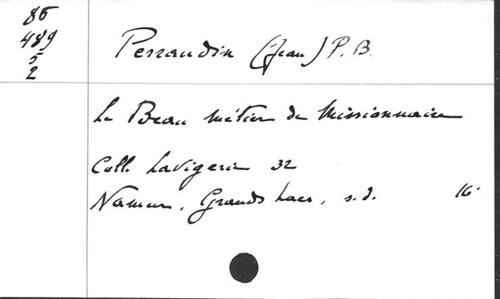 86
489
5
2
Perraudin (Jean) P.B.
Le Beau Métier de Missionnaire
Coll. Lavigerie 32
Namur, Grands Lacs, s.d. 16°